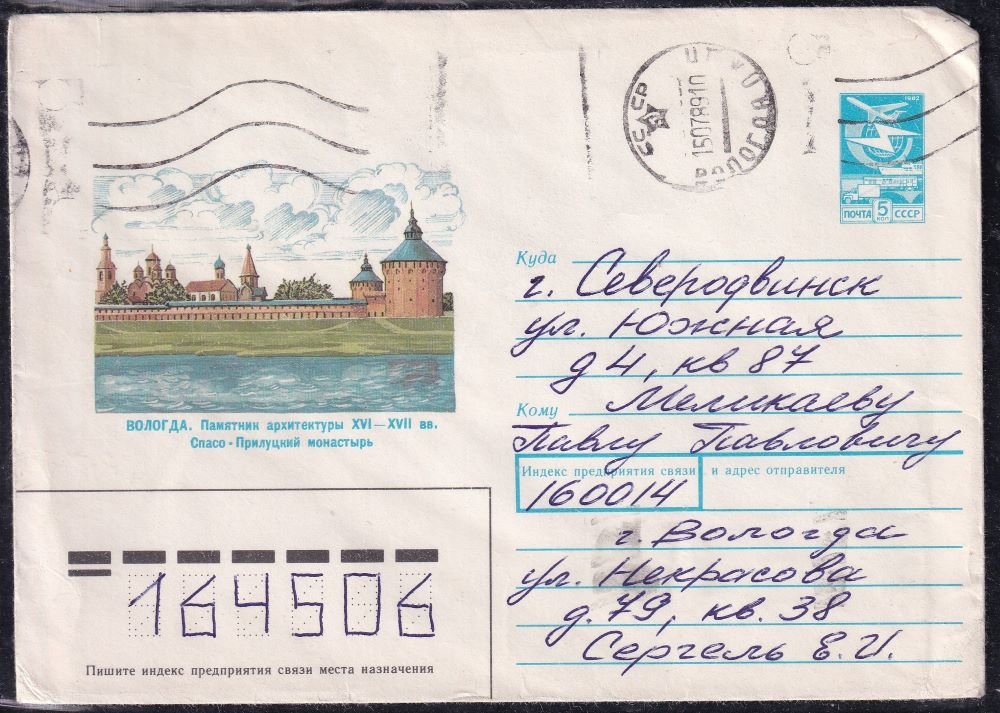 СССР
15078910
ВОЛОГДА
1982
ПОЧТА 5 КОП СССР
Куда
г. Северодвинск
ул. Южная
д 4, кв 87
Кому Меликаеву
Павлу Павловичу
Индекс предприятия связи и адрес отправителя
160014
г. Вологда
ул. Некрасова
д. 79, кв. 38
Сергель Е.И.
ВОЛОГДА. Памятник архитектуры XVI—XVII вв.
Спасо-Прилуцкий монастырь
164506
Пишите индекс предприятия связи места назначения